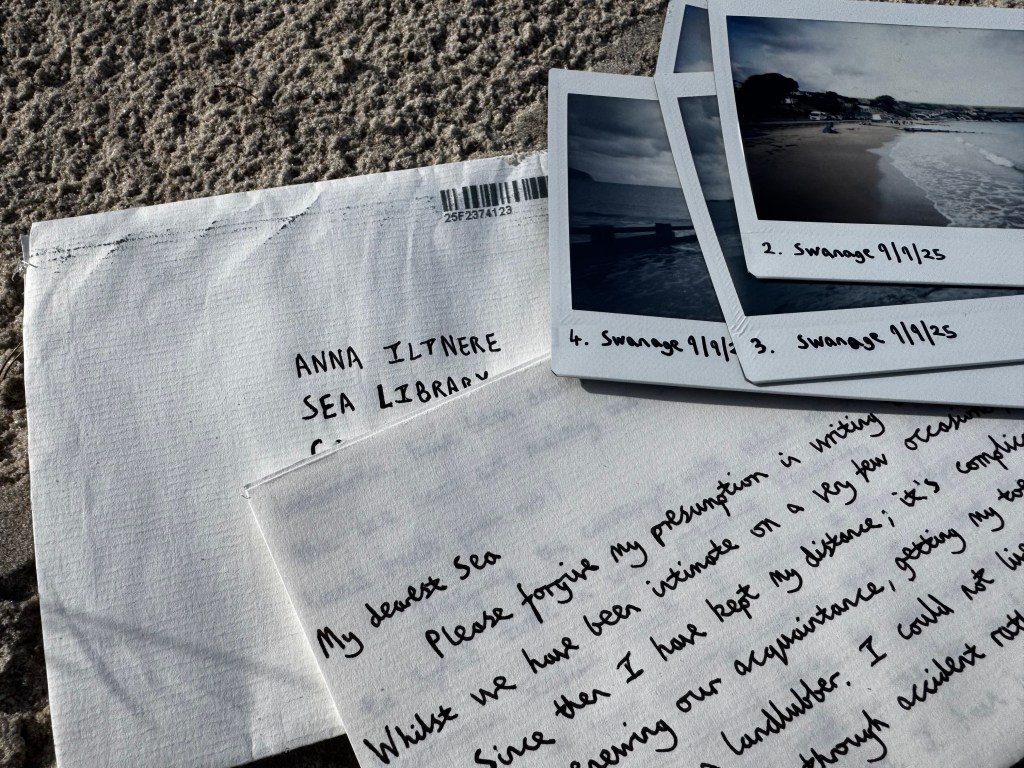 25F2374123
ANNA ILTNERE
SEA LIBRARY
2. Swanage 9/9/25
3. Swanage 9/9/25
4. Swanage 9/9/2
My dearest Sea
Please forgive my presumption in writing
Whilst we have been intimate on a very few occasions,
Since then I have kept my distance; it's
our acquaintance, getting my
landlubber. I could not
through accident